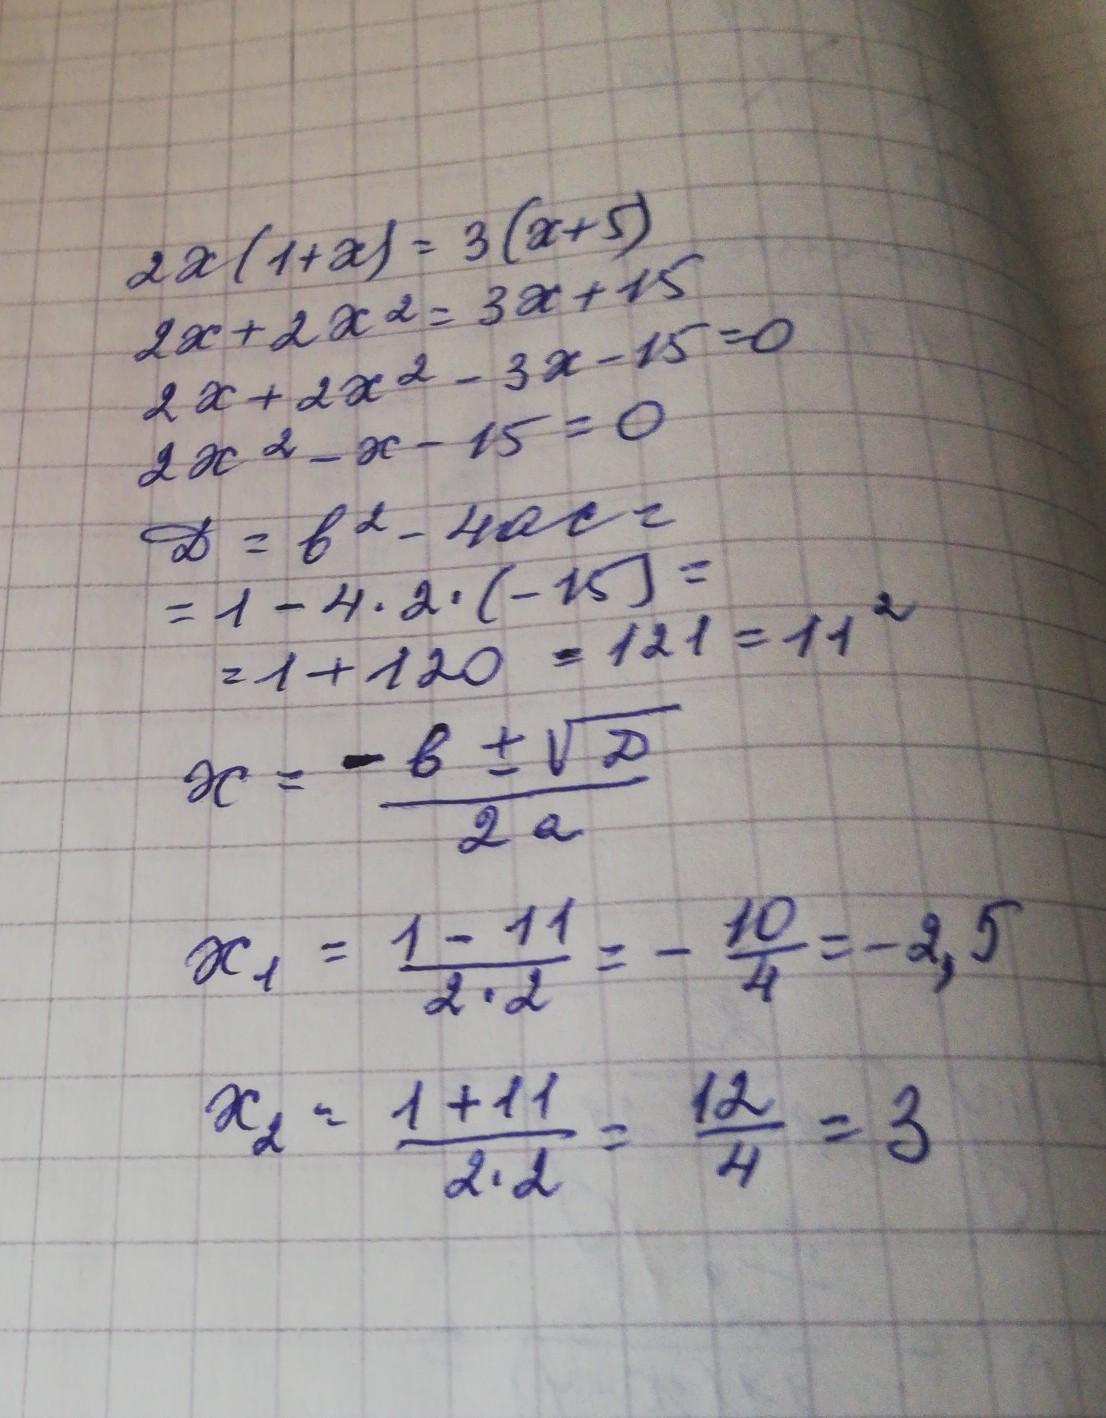 2x(1+x) = 3(x+5)
2x+2x² = 3x+15
2x+2x² - 3x - 15 = 0
2x² - x - 15 = 0
D = b² - 4ac =
= 1 - 4·2·(-15) =
= 1 + 120 = 121 = 11²
x = (-b ± √D) / 2a
x₁ = (1 - 11) / (2·2) = - 10/4 = -2,5
x₂ = (1 + 11) / (2·2) = 12/4 = 3